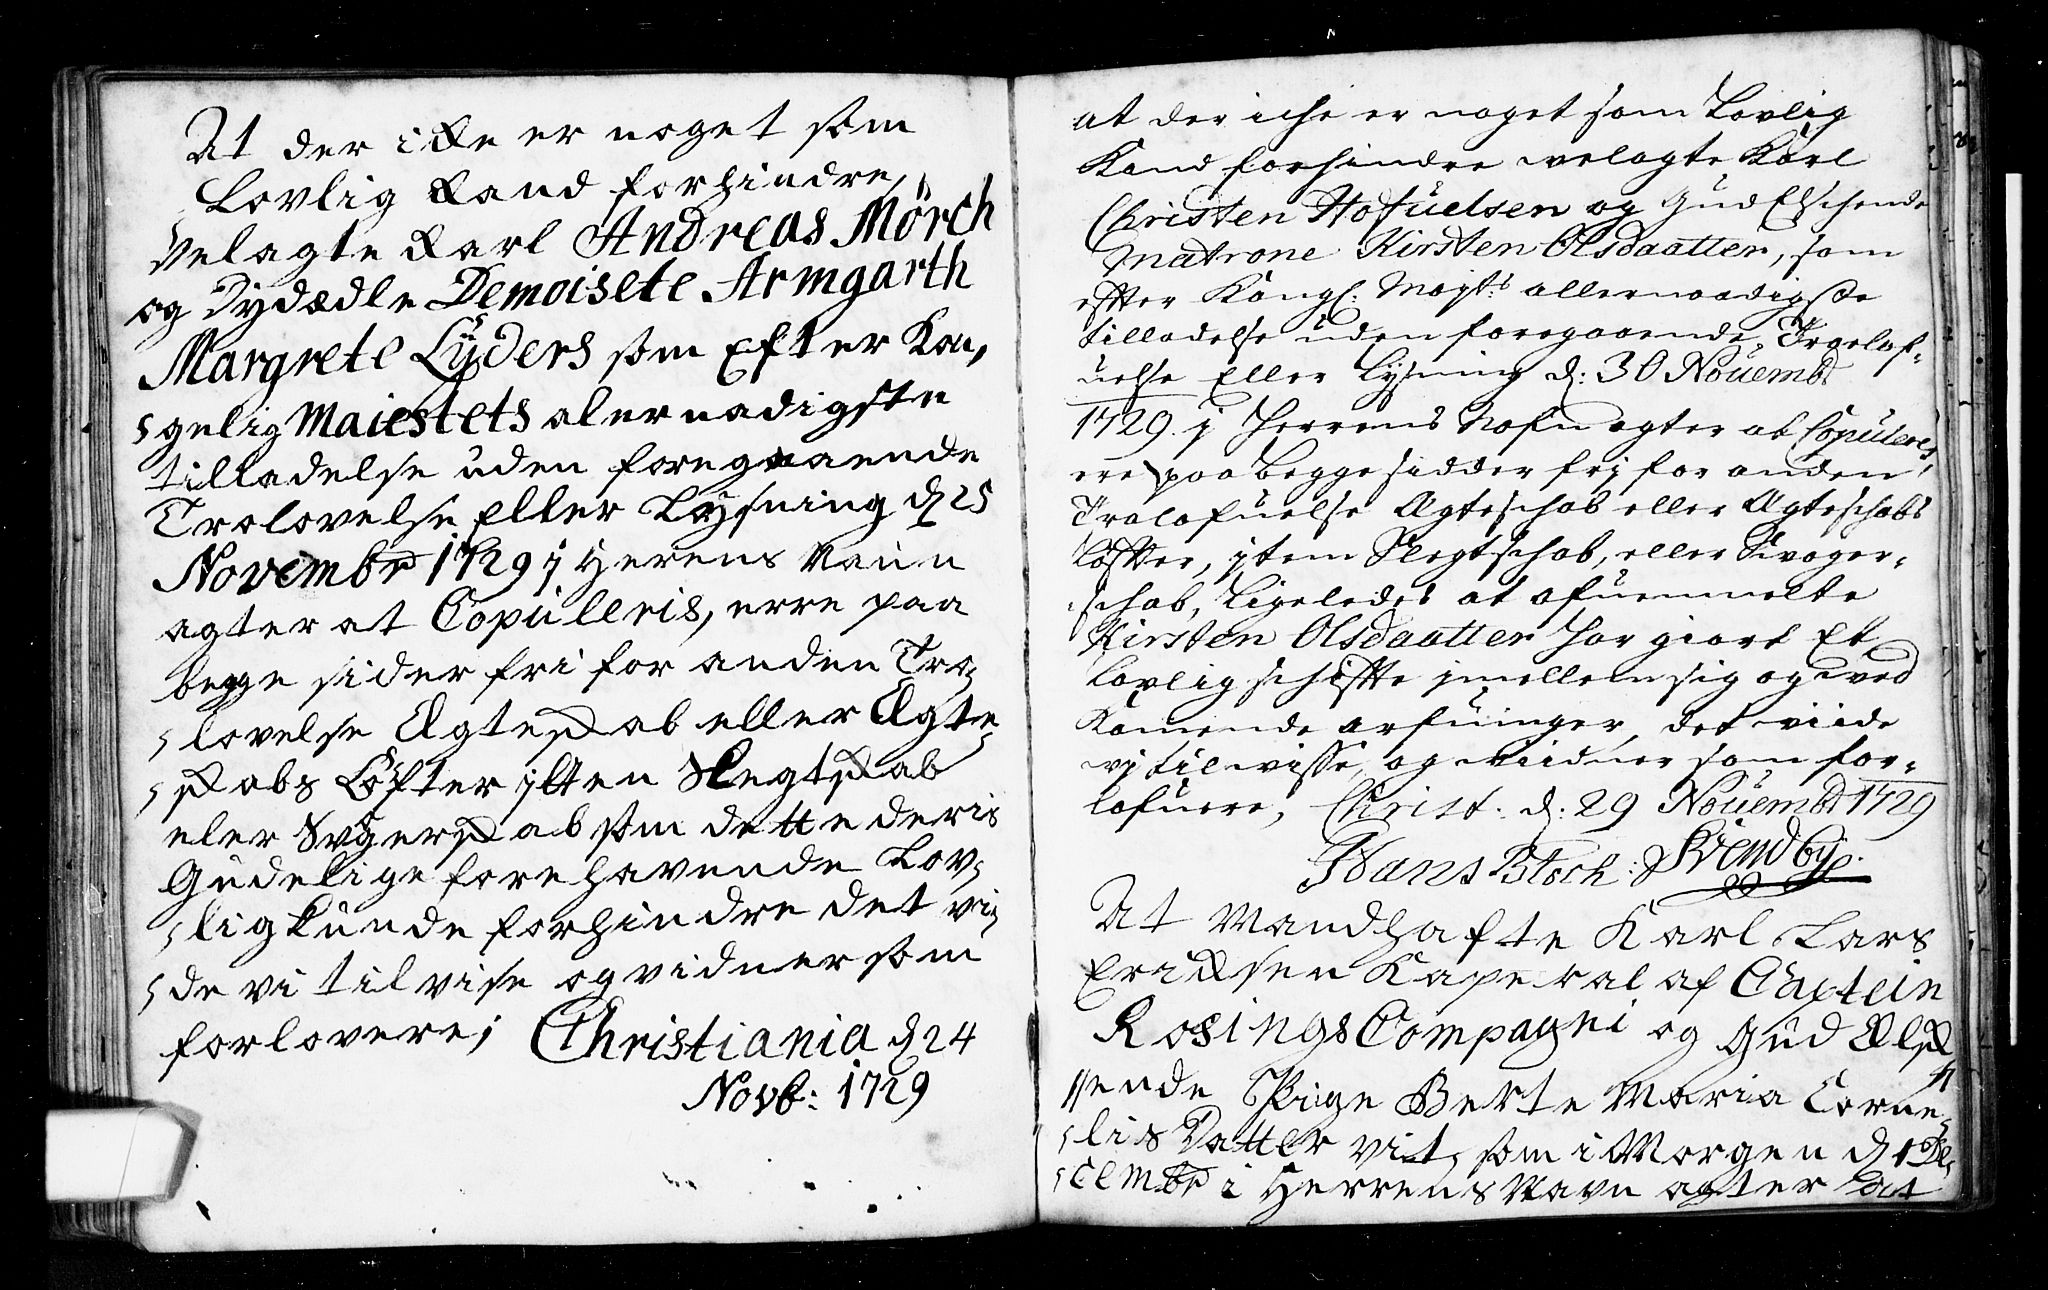 At der ikke er noget som
Lovlig kand forhindre,
Velagte Karl Andreas Mörch
og Dydædle Demoisele Armgarth
Margrete Lÿders som Efter Kon,
gelig Maiestets alernadigste
tilladelse uden foregaaende
Trolovelse Eller Lysning d 25
Novembr 1729 j Herens Naun
agter at Copulleris, erre paa
begge sider fri for anden Tro,
lovelse Ægteskab eller Ægte,
skabs Löfter jtten Slegtskab
eler Svgerskab som dette deris
Gudelige forehavende Lov,
lig kunde forhindre det vi,
de vi til vise og vidner som
forlovere; Christiania d 24
Novb: 1729
at der iche er noget som Lovlig
Kand forhindre velagte Karl
Christen Hofuelsen og Gud Elschende
Matrone Kirsten Olsdaatter, som
effter Kongl: Mayts allernaadigste
tilladelse uden foregaaende Troelof,
uelse Eller Lysning d: 30 Nouembr
1729. j Herrens Nafn agter at Copulere,
ere paa begge sidder frj for anden
Trolofuelse Ægteschab eller Ægteschabs
Löffter, jtem Slegtschab, eller Svoger,
schab, Ligeledes at ofuenmelte
Kirsten Olsdaatter har giort Et
lovlig schiffte jmellem sig og ved
Komende arfuinger, det viide
vj til visse, og viidner som for,
lofuere, Christ: d: 29 Nouembr 1729
Hans Bloch: Svendby.
At Mandhafte Karl Lars
Eriksen Kaperal af Captein
Rosings Compagni og Gud Elsk
ende Pige Berte Maria Corne,
lis Datter vit, som i Morgen d 1 De,
cembr i Herrens Navn agter at